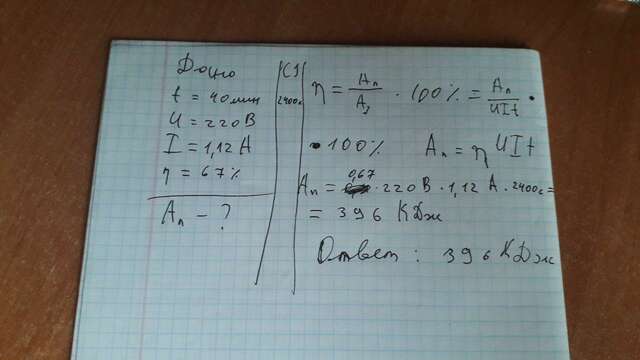 Дано
t = 40 мин
U = 220 В
I = 1,12 А
η = 67 %
Aп - ?
СИ
2400с
η = Aп/Aз · 100% = Aп/UIt ·
· 100% Aп = η UIt
Aп = 0,67 · 220 В · 1,12 А · 2400с =
= 396 КДж
Ответ: 396 КДж